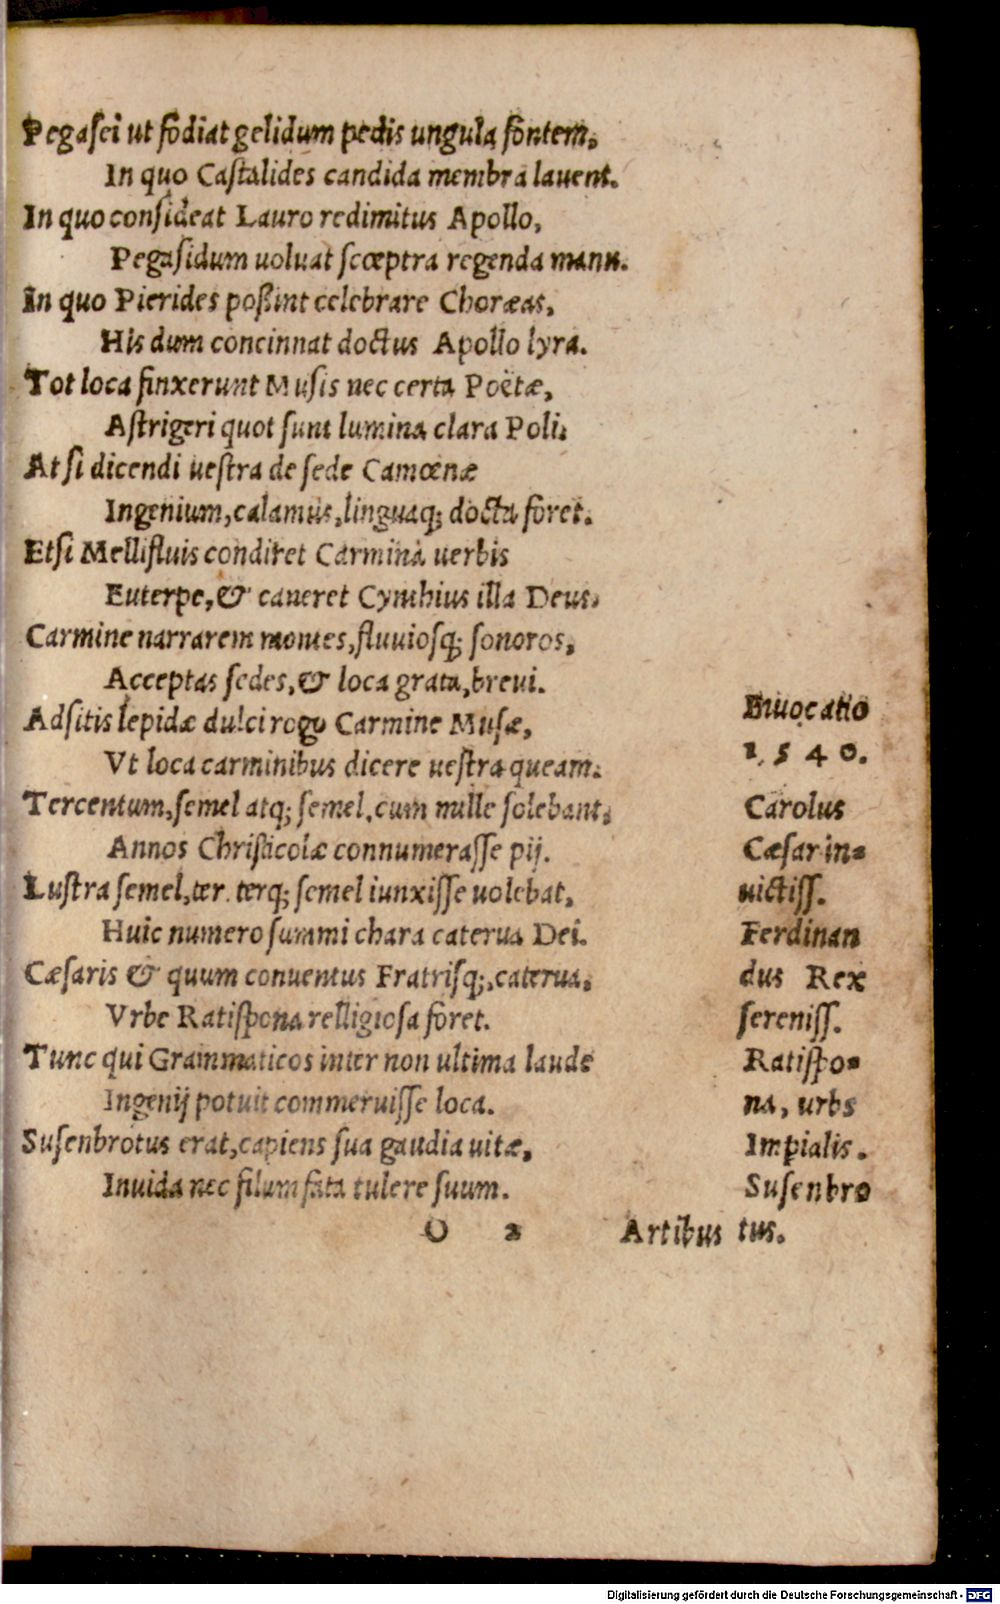 Pegasei ut fodiat gelidum pedis ungula fontem,
In quo Castalides candida membra lauent.
In quo consideat Lauro redimitus Apollo,
Pegasidum uoluat scœptra regenda manu.
In quo Pierides poßint celebrare Choræas,
His dum concinnat doctus Apollo lyra.
Tot loca finxerunt Musis nec certa Poëtæ,
Astrigeri quot sunt lumina clara Poli.
At si dicendi uestra de sede Camœnæ
Ingenium, calamus, linguaq; docta foret.
Etsi Mellifluis condiret Carmina uerbis
Euterpe, & caneret Cynthius illa Deus,
Carmine narrarem montes, fluuiosq; sonoros,
Acceptas sedes, & loca grata, breui.
Adsitis lepidæ dulci rogo Carmine Musæ,
Vt loca carminibus dicere uestra queam.
Tercentum, semel atq; semel, cum mille solebant,
Annos Christicolæ connumerasse pij.
Lustra semel, ter. terq; semel iunxisse uolebat,
Huic numero summi chara caterua Dei.
Cæsaris & quum conuentus Fratrisq;, caterua,
Vrbe Ratispona relligiosa foret.
Tunc qui Grammaticos inter non ultima laude
Ingenij potuit commeruisse loca.
Susenbrotus erat, capiens sua gaudia uitæ,
Inuida nec filum fata tulere suum.
O 2 Artibus
Inuocatio
1540.
Carolus
Cæsar in=
uictiss.
Ferdinan
dus Rex
sereniss.
Ratispo=
na, urbs
Impialis.
Susenbro
tus.
Digitalisierung gefördert durch die Deutsche Forschungsgemeinschaft - DFG